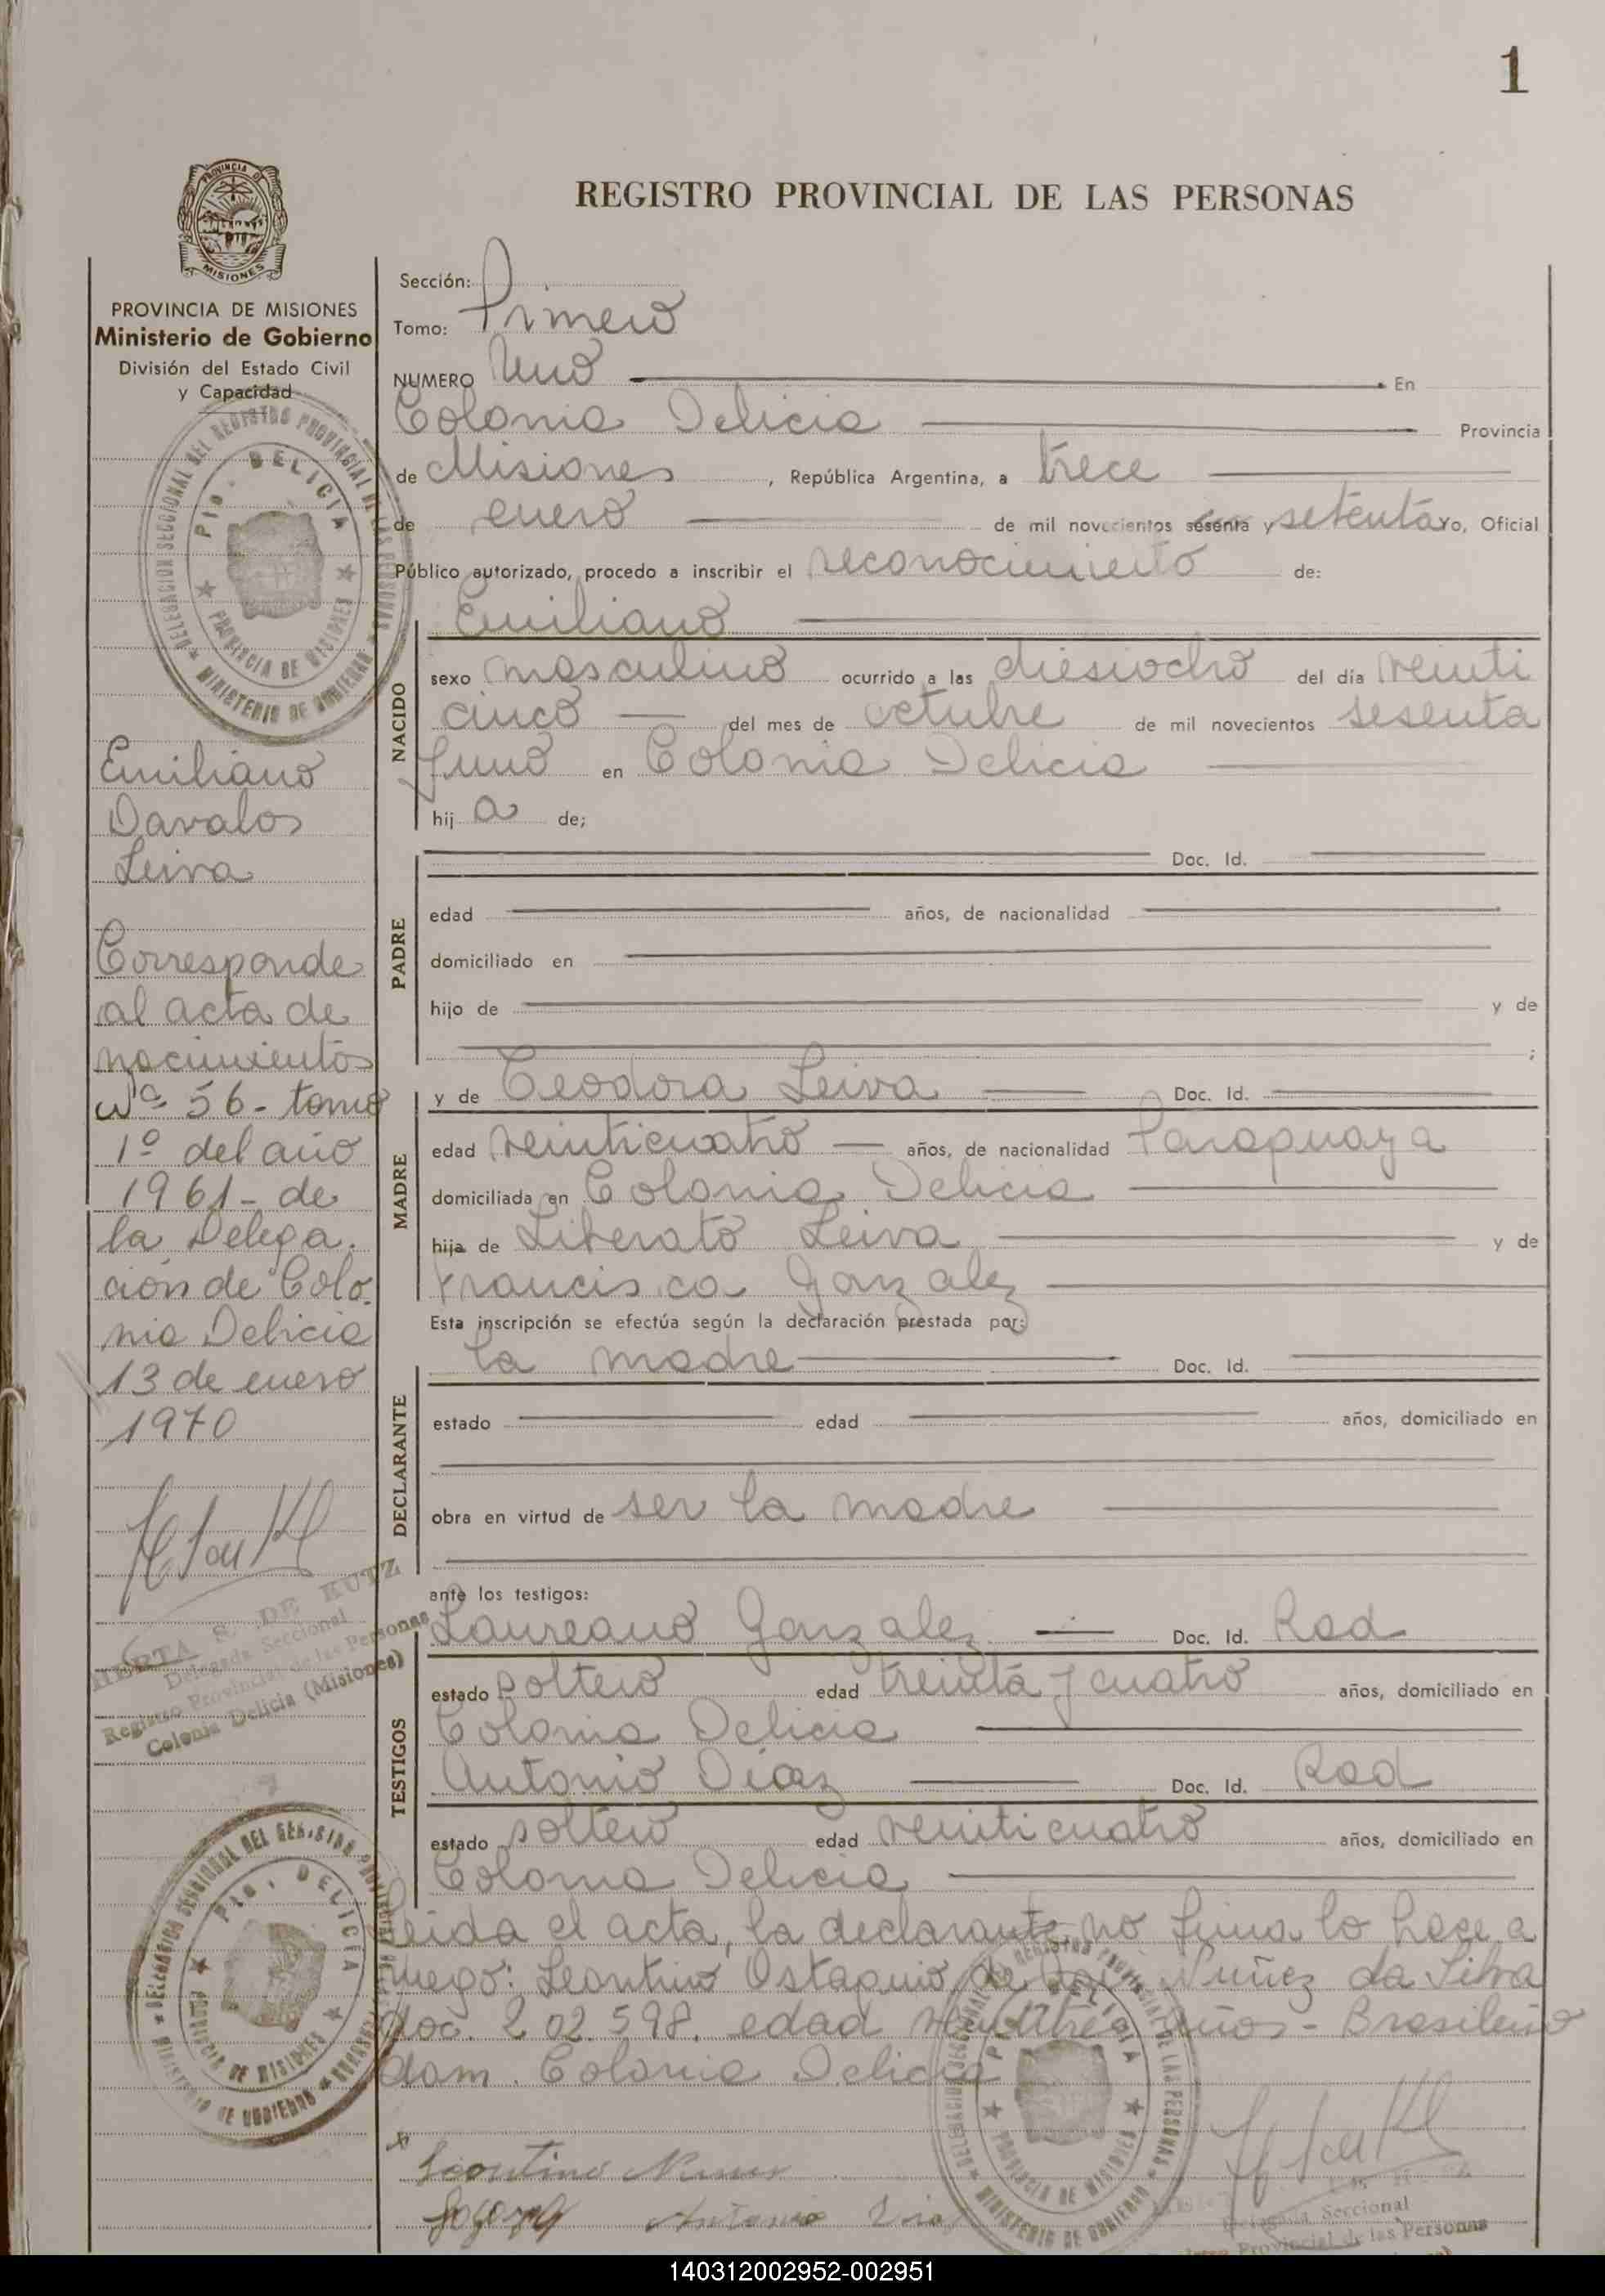 1
REGISTRO PROVINCIAL DE LAS PERSONAS
PROVINCIA DE MISIONES
PROVINCIA DE MISIONES
Ministerio de Gobierno
División del Estado Civil
y Capacidad
DELEGACION SECCIONAL DEL REGISTRO PROVINCIAL DE LAS PERSONAS
MINISTERIO DE GOBIERNO
PTO. DELICIA
PROVINCIA DE MISIONES
Emiliano
Davalos
Leiva
Corresponde
al acta de
nacimientos
Nº 56 - tomo
1º del año
1961 - de
la Delega.
ción de Colo.
nia Delicia
13 de enero
1970
HERTA S. DE KUTZ
Delegada Seccional
Registro Provincial de las Personas
Colonia Delicia (Misiones)
DELEGACION SECCIONAL DEL REGISTRO PROVINCIAL DE LAS PERSONAS
MINISTERIO DE GOBIERNO
PTO. DELICIA
PROVINCIA DE MISIONES
Sección:
Tomo: Primero
NUMERO Uno En
Colonia Delicia Provincia
de Misiones, República Argentina, a trece
de enero de mil novecientos sesenta y setenta yo, Oficial
Público autorizado, procedo a inscribir el reconocimiento de:
Emiliano
NACIDO
sexo masculino ocurrido a las diesiocho del día veinti
cinco del mes de octubre de mil novecientos sesenta
y uno en Colonia Delicia
hij a de;
PADRE
Doc. Id.
edad años, de nacionalidad
domiciliado en
hijo de y de
;
MADRE
y de Teodora Leiva Doc. Id.
edad veinticuatro años, de nacionalidad Paraguaya
domiciliada en Colonia Delicia
hija de Liberato Leiva y de
Francisca Gonzalez
Esta inscripción se efectúa según la declaración prestada por:
DECLARANTE
la madre Doc. Id.
estado edad años, domiciliado en
obra en virtud de ser la madre
ante los testigos:
TESTIGOS
Laureano Gonzalez Doc. Id. Rad
estado soltero edad treinta y cuatro años, domiciliado en
Colonia Delicia
Antonio Diaz Doc. Id. Rad
estado soltero edad veinticuatro años, domiciliado en
Colonia Delicia
Leida el acta, la declarante no firma lo hace a
ruego: Leontino Ostaquio de Nuñez da Silva
doc. 202.598. edad años - Brasileño
dom. Colonia Delicia
DELEGACION SECCIONAL DEL REGISTRO PROVINCIAL DE LAS PERSONAS
MINISTERIO DE GOBIERNO
PTO. DELICIA
PROVINCIA DE MISIONES
Leontino Nunes
Antonio Dias
Delegada Seccional
Registro Provincial de las Personas
140312002952-002951